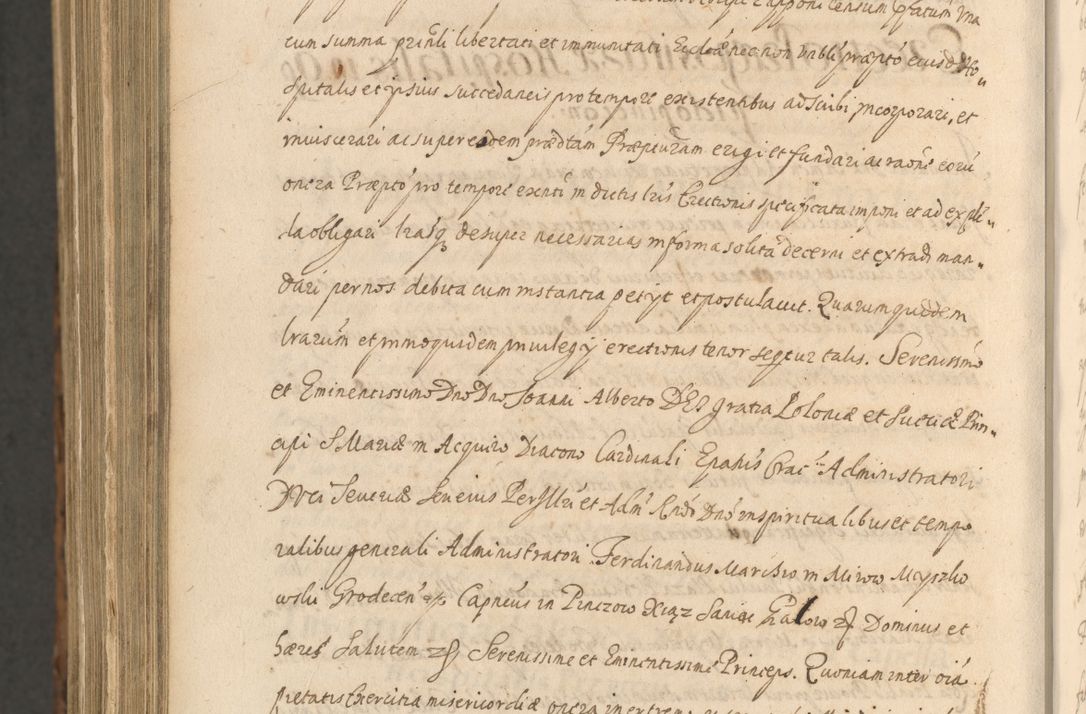 censum pfatum una
cum summa prinli libertati et immunitati Ecclæ necnon unbli præpto eiusd Ho„
spitalis et ipsius succedaneis pro tempore existentibus adscribi incorporari, et
inviscerari ac super eodem prædtam Præptúram erigi et fundari ac raõne eorũ
onera Præpto pro tempore exñti in dictis lris Erectionis specificata imponi et ad exple„
da obligari lrasq desuper necessarias in forma solita decerni et extradi man„
dari per nos debita cum instantia petijt et postulavit. Quarum quidem
lrarum et immo quidem privilegij erectionis tenor seqtur talis. Serenissimo
et Eminentissimo Dno Dno Joanni Alberto DEI gratia Poloniæ et Sueciæ Prin„
cipi S Mariæ in Acquiro Diacono Cardinali Epatus Crac: Administratori
DVCi Severiæ seu eius Per Illri et Adm Rndo Dno in spiritualibus et tempo
ralibus generali Administratori. Ferdinandus Marchio in Mirow Myszko
wski Grodecen Capneus in Pinczow Xiąz Dominus et
hæres Salutem Serenissime et Eminentissime Princeps. Quoniam inter oia
pietatis Exercitia misericordiæ opera